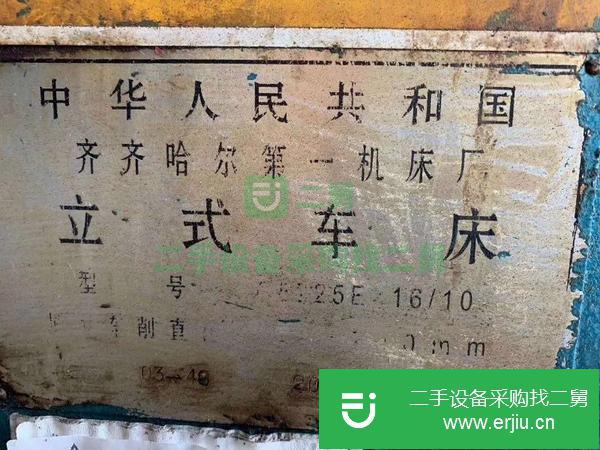 中华人民共和国
齐齐哈尔第一机床厂
二舅
立式车床
二手设备采购找二舅
型号 5225E 16/10
车削直 mm
03-48 20
二手设备采购找二舅
www.erjiu.cn